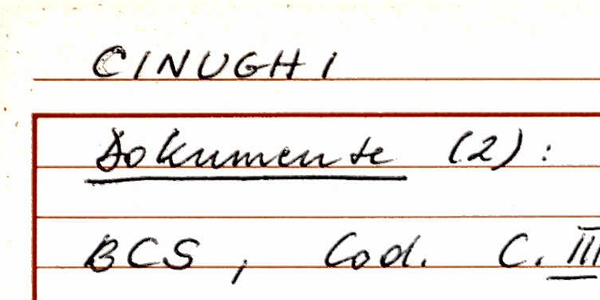 CINUGHI
Dokumente (2):
BCS, Cod. C. III